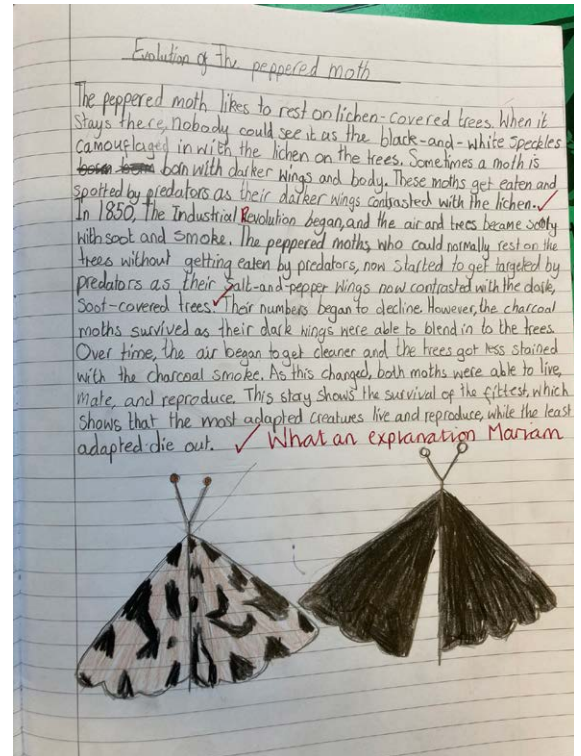 Evolution of the peppered moth
The peppered moth likes to rest on lichen-covered trees. When it
stays there, nobody could see it as the black-and-white speckles
camouflaged in with the lichen on the trees. Sometimes a moth is
born with darker wings and body. These moths get eaten and
spotted by predators as their darker wings contrasted with the lichen.
In 1850, the Industrial Revolution began, and the air and trees became sooty
with soot and smoke. The peppered moths, who could normally rest on the
trees without getting eaten by predators, now started to get targeted by
predators as their salt-and-pepper wings now contrasted with the dark,
soot-covered trees. Their numbers began to decline. However, the charcoal
moths survived as their dark wings were able to blend in to the trees.
Over time, the air began to get cleaner and the trees got less stained
with the charcoal smoke. As this changed, both moths were able to live,
mate, and reproduce. This stay shows the survival of the fittest, which
shows that the most adapted creatures live and reproduce, while the least
adapted die out. What an explanation Mariam